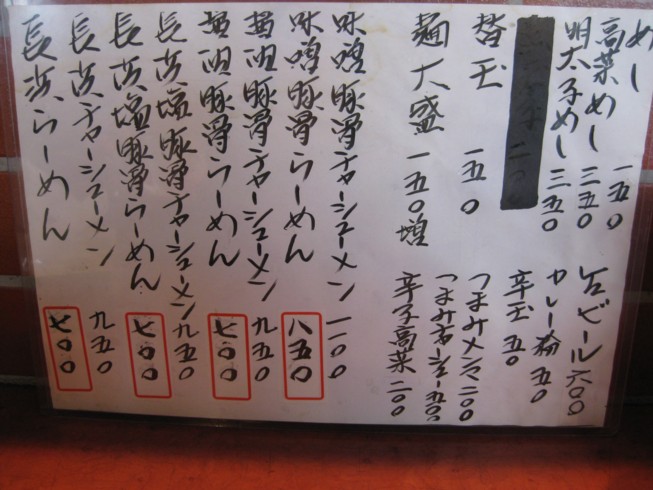 めし 一五〇
高菜めし 三五〇
明太子めし 三五〇
替玉 一五〇
麺大盛 一五〇増
ビール 六〇〇
カレー粉 五〇
辛玉 五〇
つまみメンマ 二〇〇
つまみチャーシュー 五〇〇
辛子高菜 二〇〇
味噌豚骨チャーシューメン 一一〇〇
味噌豚骨らーめん 八五〇
醤油豚骨チャーシューメン 九五〇
醤油豚骨らーめん 七〇〇
長浜塩豚骨チャーシューメン 九五〇
長浜塩豚骨らーめん 七〇〇
長浜チャーシューメン 九五〇
長浜らーめん 七〇〇